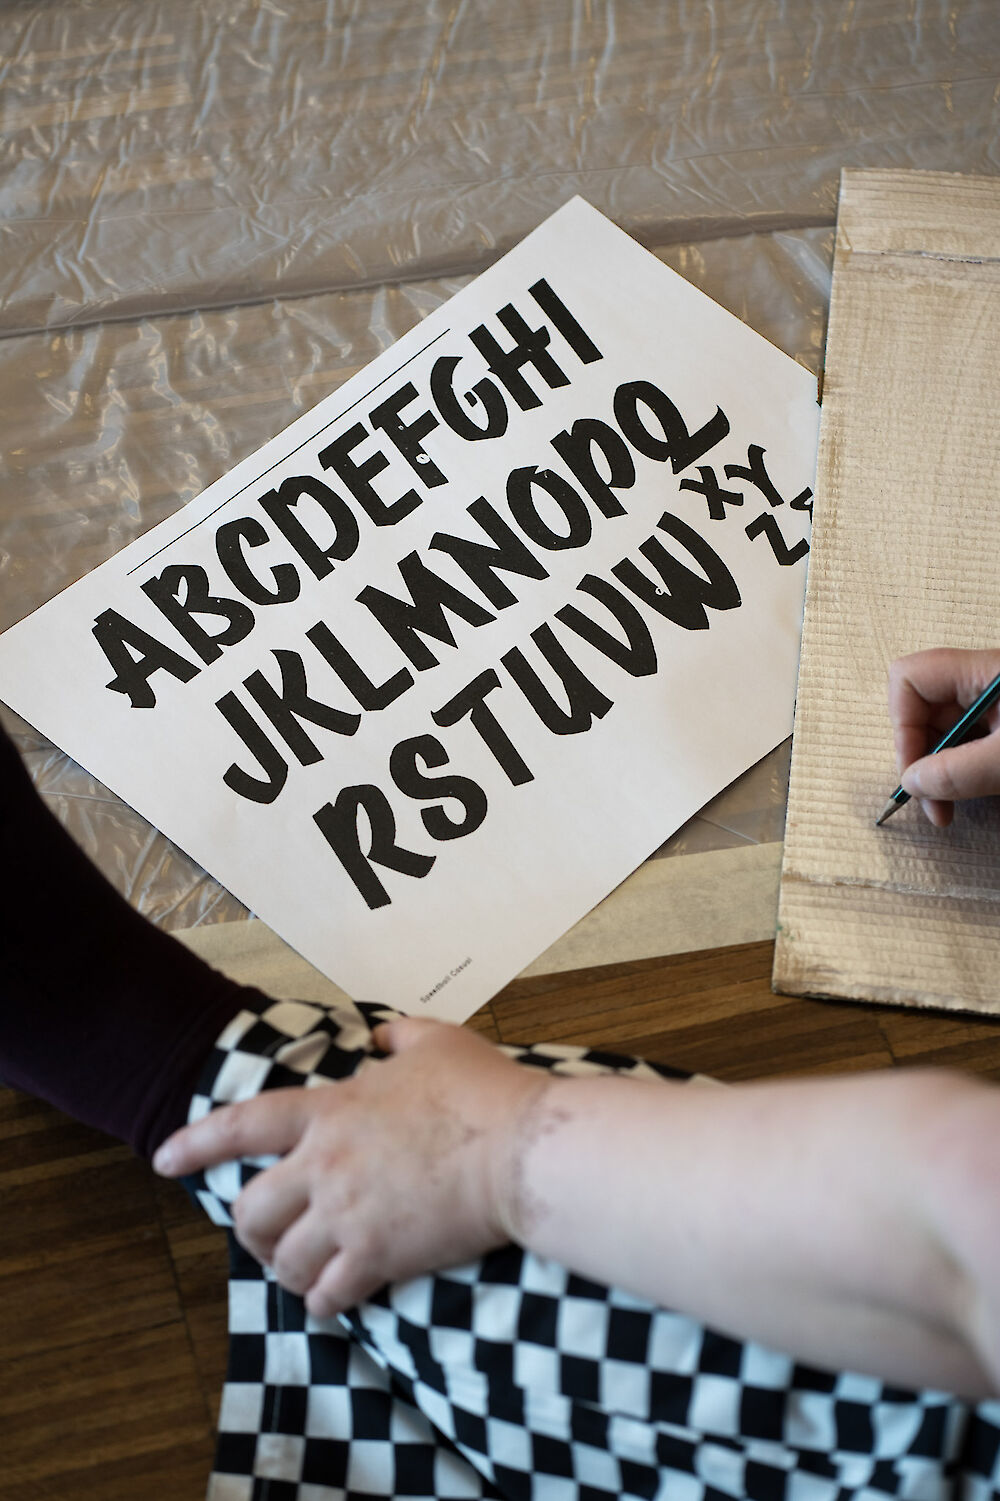 ABCDEFGHI
JKLMNOPQ
RSTUVW
XY
Z
Speedball Casual